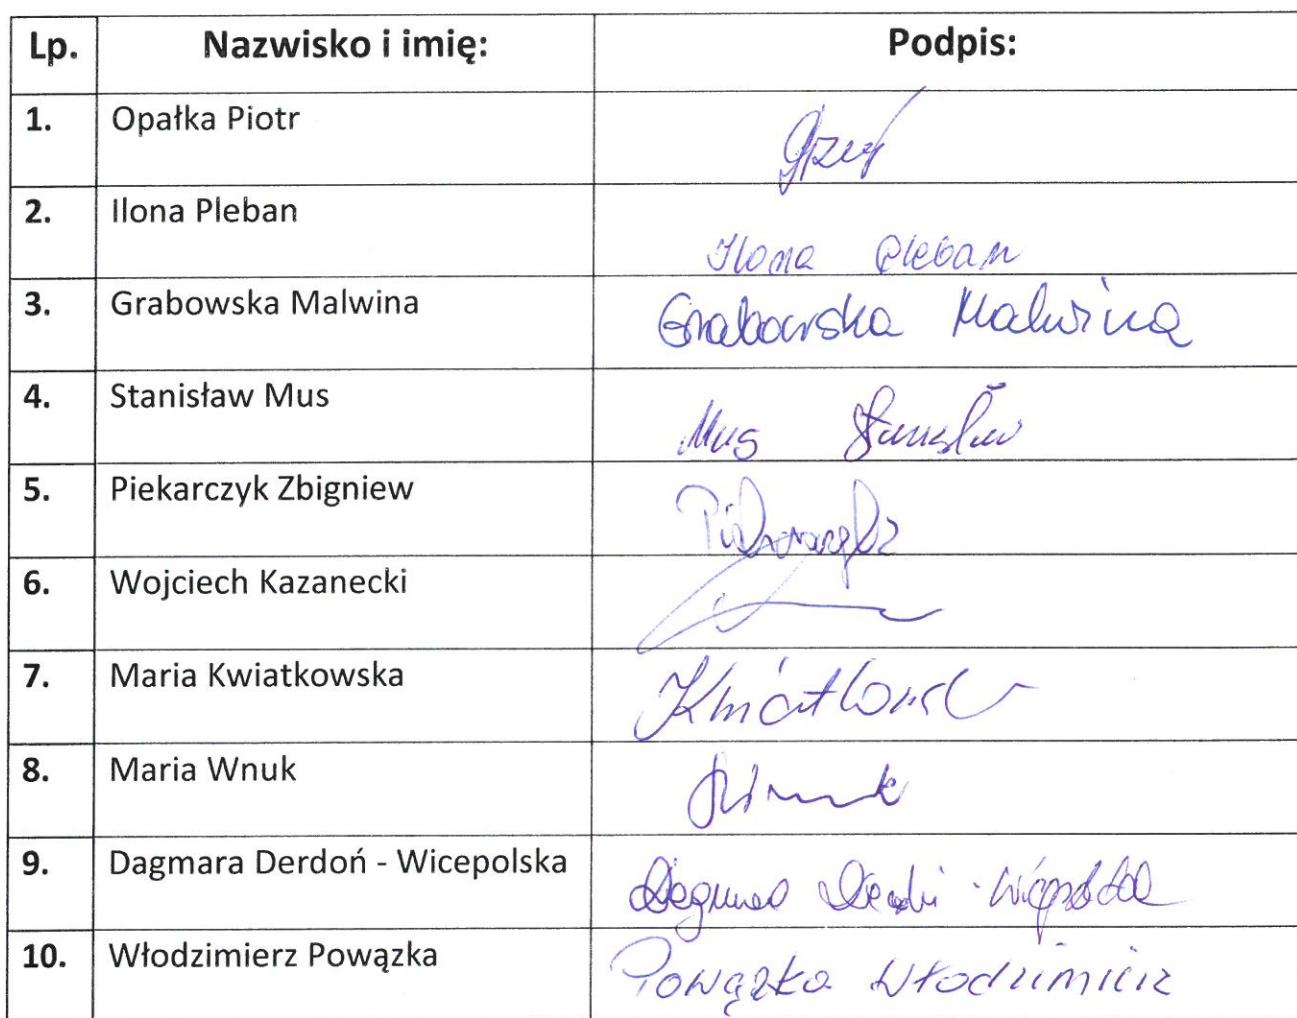 Lp. Nazwisko i imię: Podpis:
1. Opałka Piotr
2. Ilona Pleban Ilona Pleban
3. Grabowska Malwina Grabowska Malwina
4. Stanisław Mus Mus Stanisław
5. Piekarczyk Zbigniew
6. Wojciech Kazanecki
7. Maria Kwiatkowska
8. Maria Wnuk
9. Dagmara Derdoń - Wicepolska
10. Włodzimierz Powązka Powązka Włodzimierz